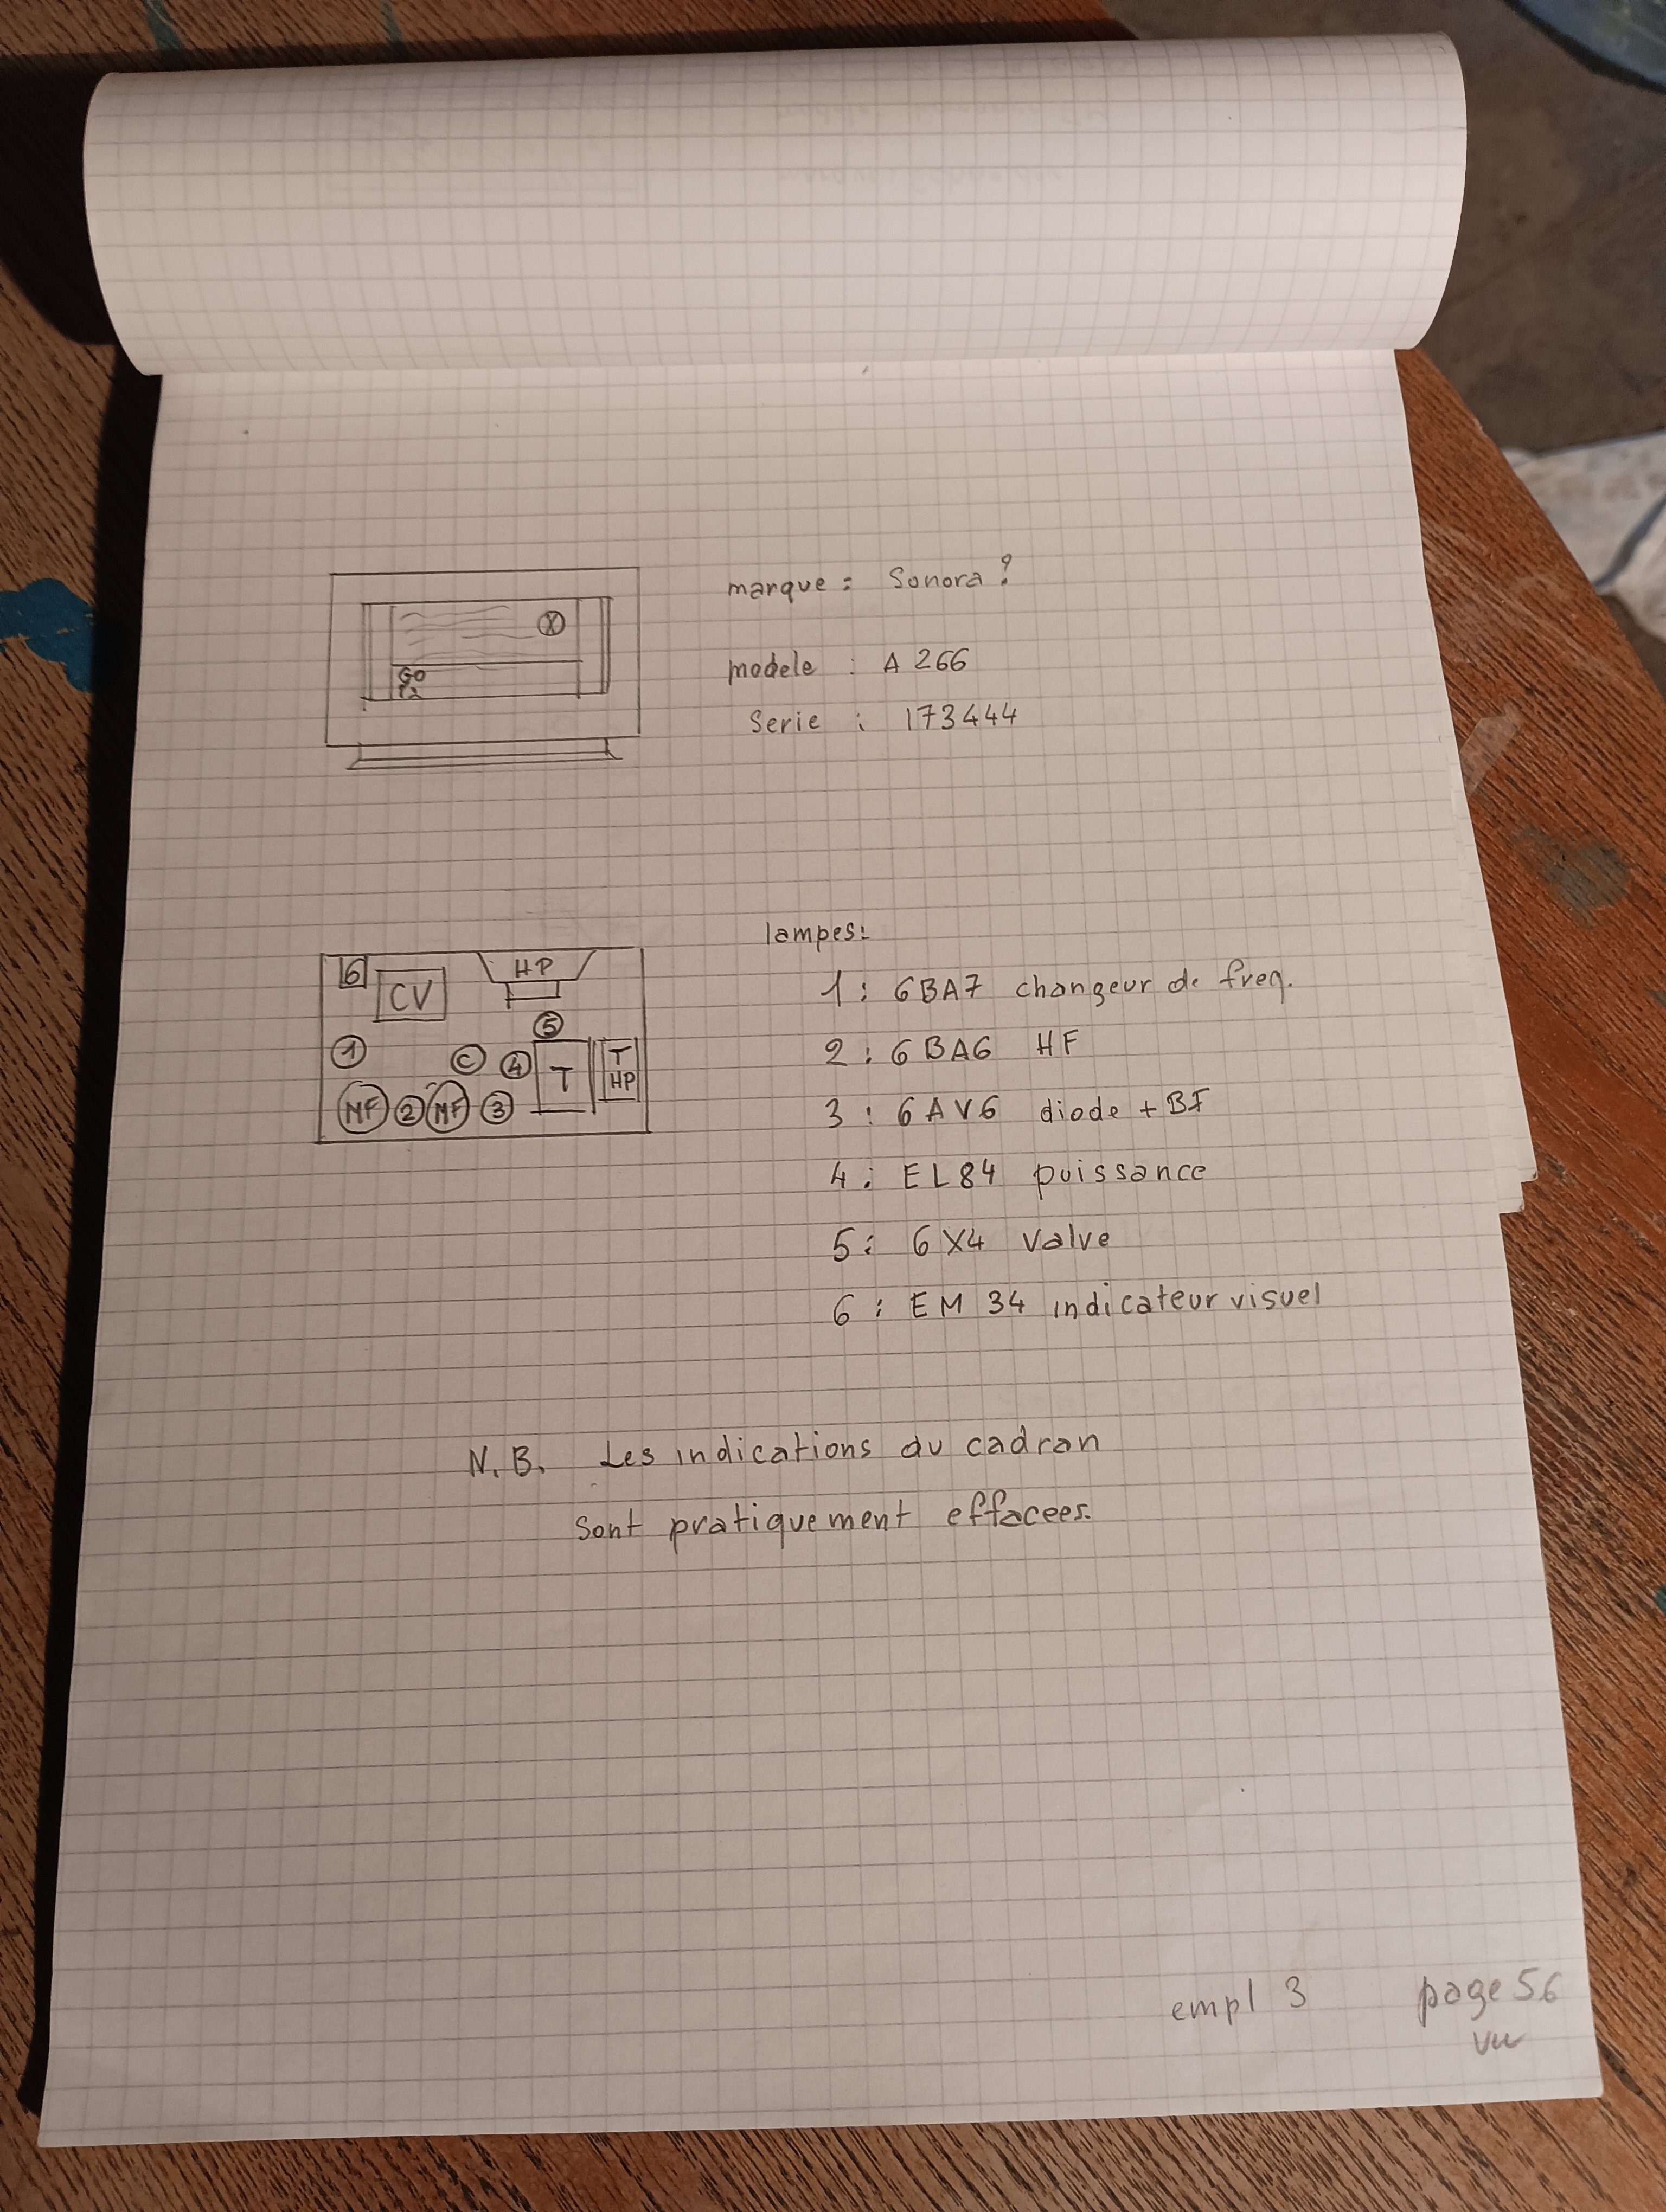 marque : Sonora ?
modele : A 266
Serie : 173444
GO
lampes:
1 : 6BA7 changeur de freq.
2 : 6BA6 HF
3 : 6AV6 diode + BF
4 : EL84 puissance
5 : 6X4 valve
6 : EM 34 indicateur visuel
6
CV
HP
5
1
C
4
T
T
HP
MF
2
MF
3
N.B. Les indications du cadran
sont pratiquement effacees.
empl 3
page 56
vu